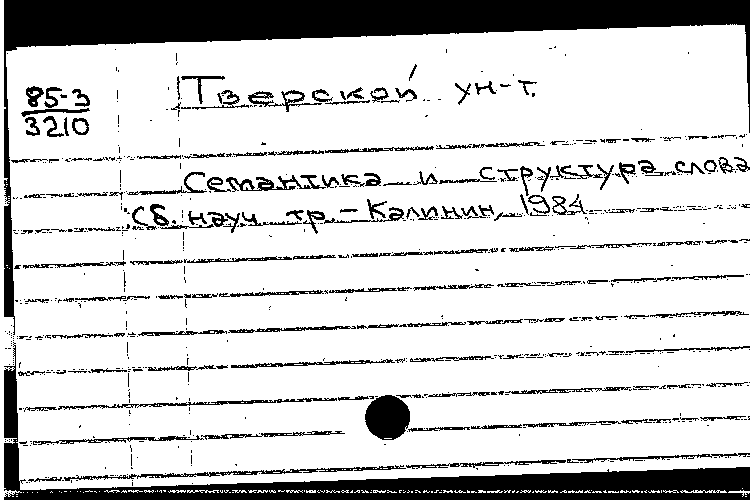 85-3
3210
Тверской ун-т.
Семантика и структура слова
Сб. науч тр. - Калинин, 1984